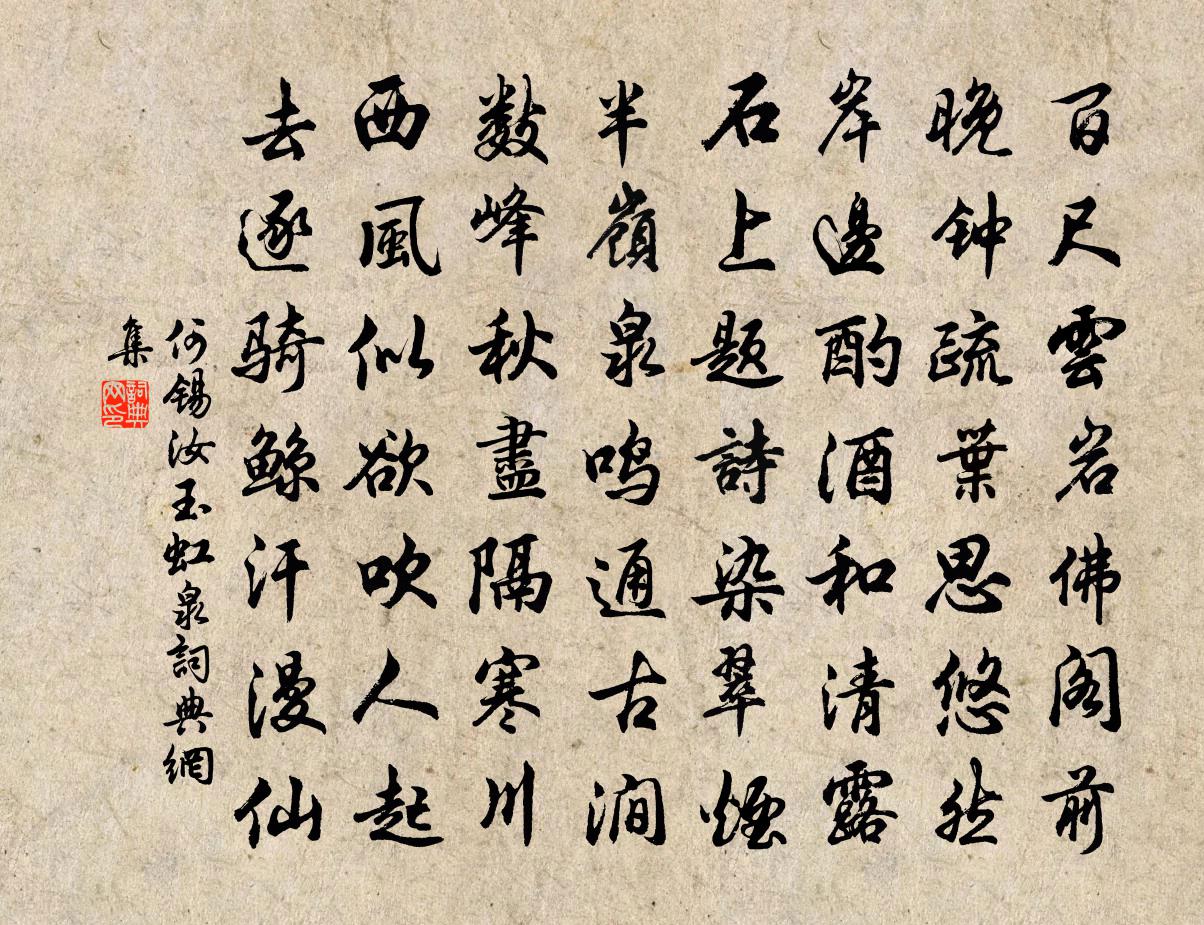 百尺雲岩佛阁前
晚钟疏葉思悠然
岸邊酌酒和清露
石上题詩染翠煙
半嶺泉鸣通古澗
数峰秋盡隔寒川
西風似欲吹人起
去逐骑鲸汗漫仙
何錫汝玉虹泉詞典網
集
詞典网印